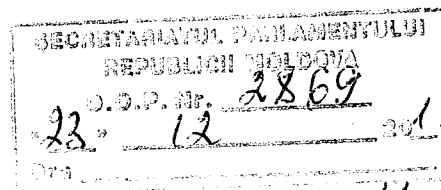 SECRETARIATUL PARLAMENTULUI
REPUBLICII MOLDOVA
D.D.P. Nr. 2869
"23" 12 201
Ora